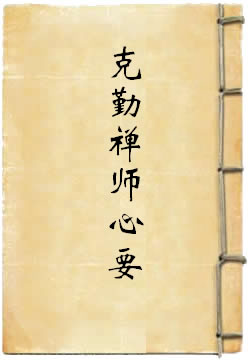 克勤禅师心要